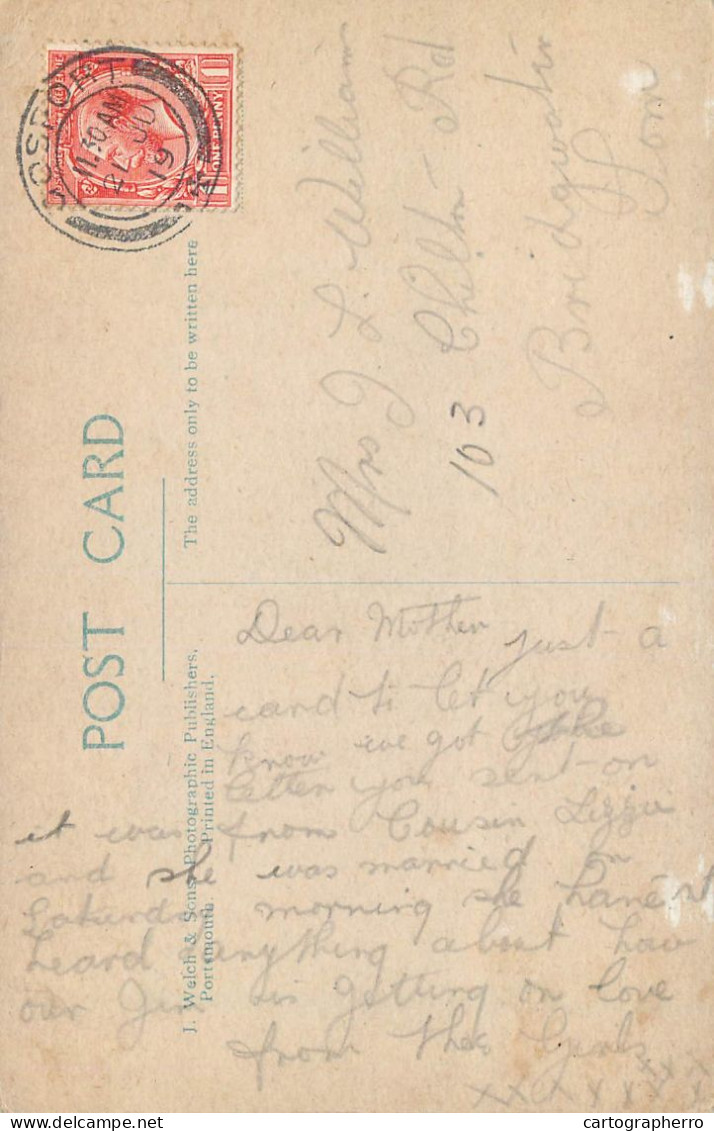 POST CARD
The address only to be written here
J. Welch & Sons, Photographic Publishers,
Portsmouth. Printed in England.
GOSPORT
11.30 AM
21 JU
19
ONE PENNY
Mrs J L Williams
103 Chilton Rd
Bridgwater
Som
Dear Mother just a
card to let you
know we got the
letter you sent on
it was from Cousin Lizzie
and she was married on
Saturday morning she hanest
heard anything about how
our Jim is getting on love
from the Girls
xxxxxxx
cartographerro